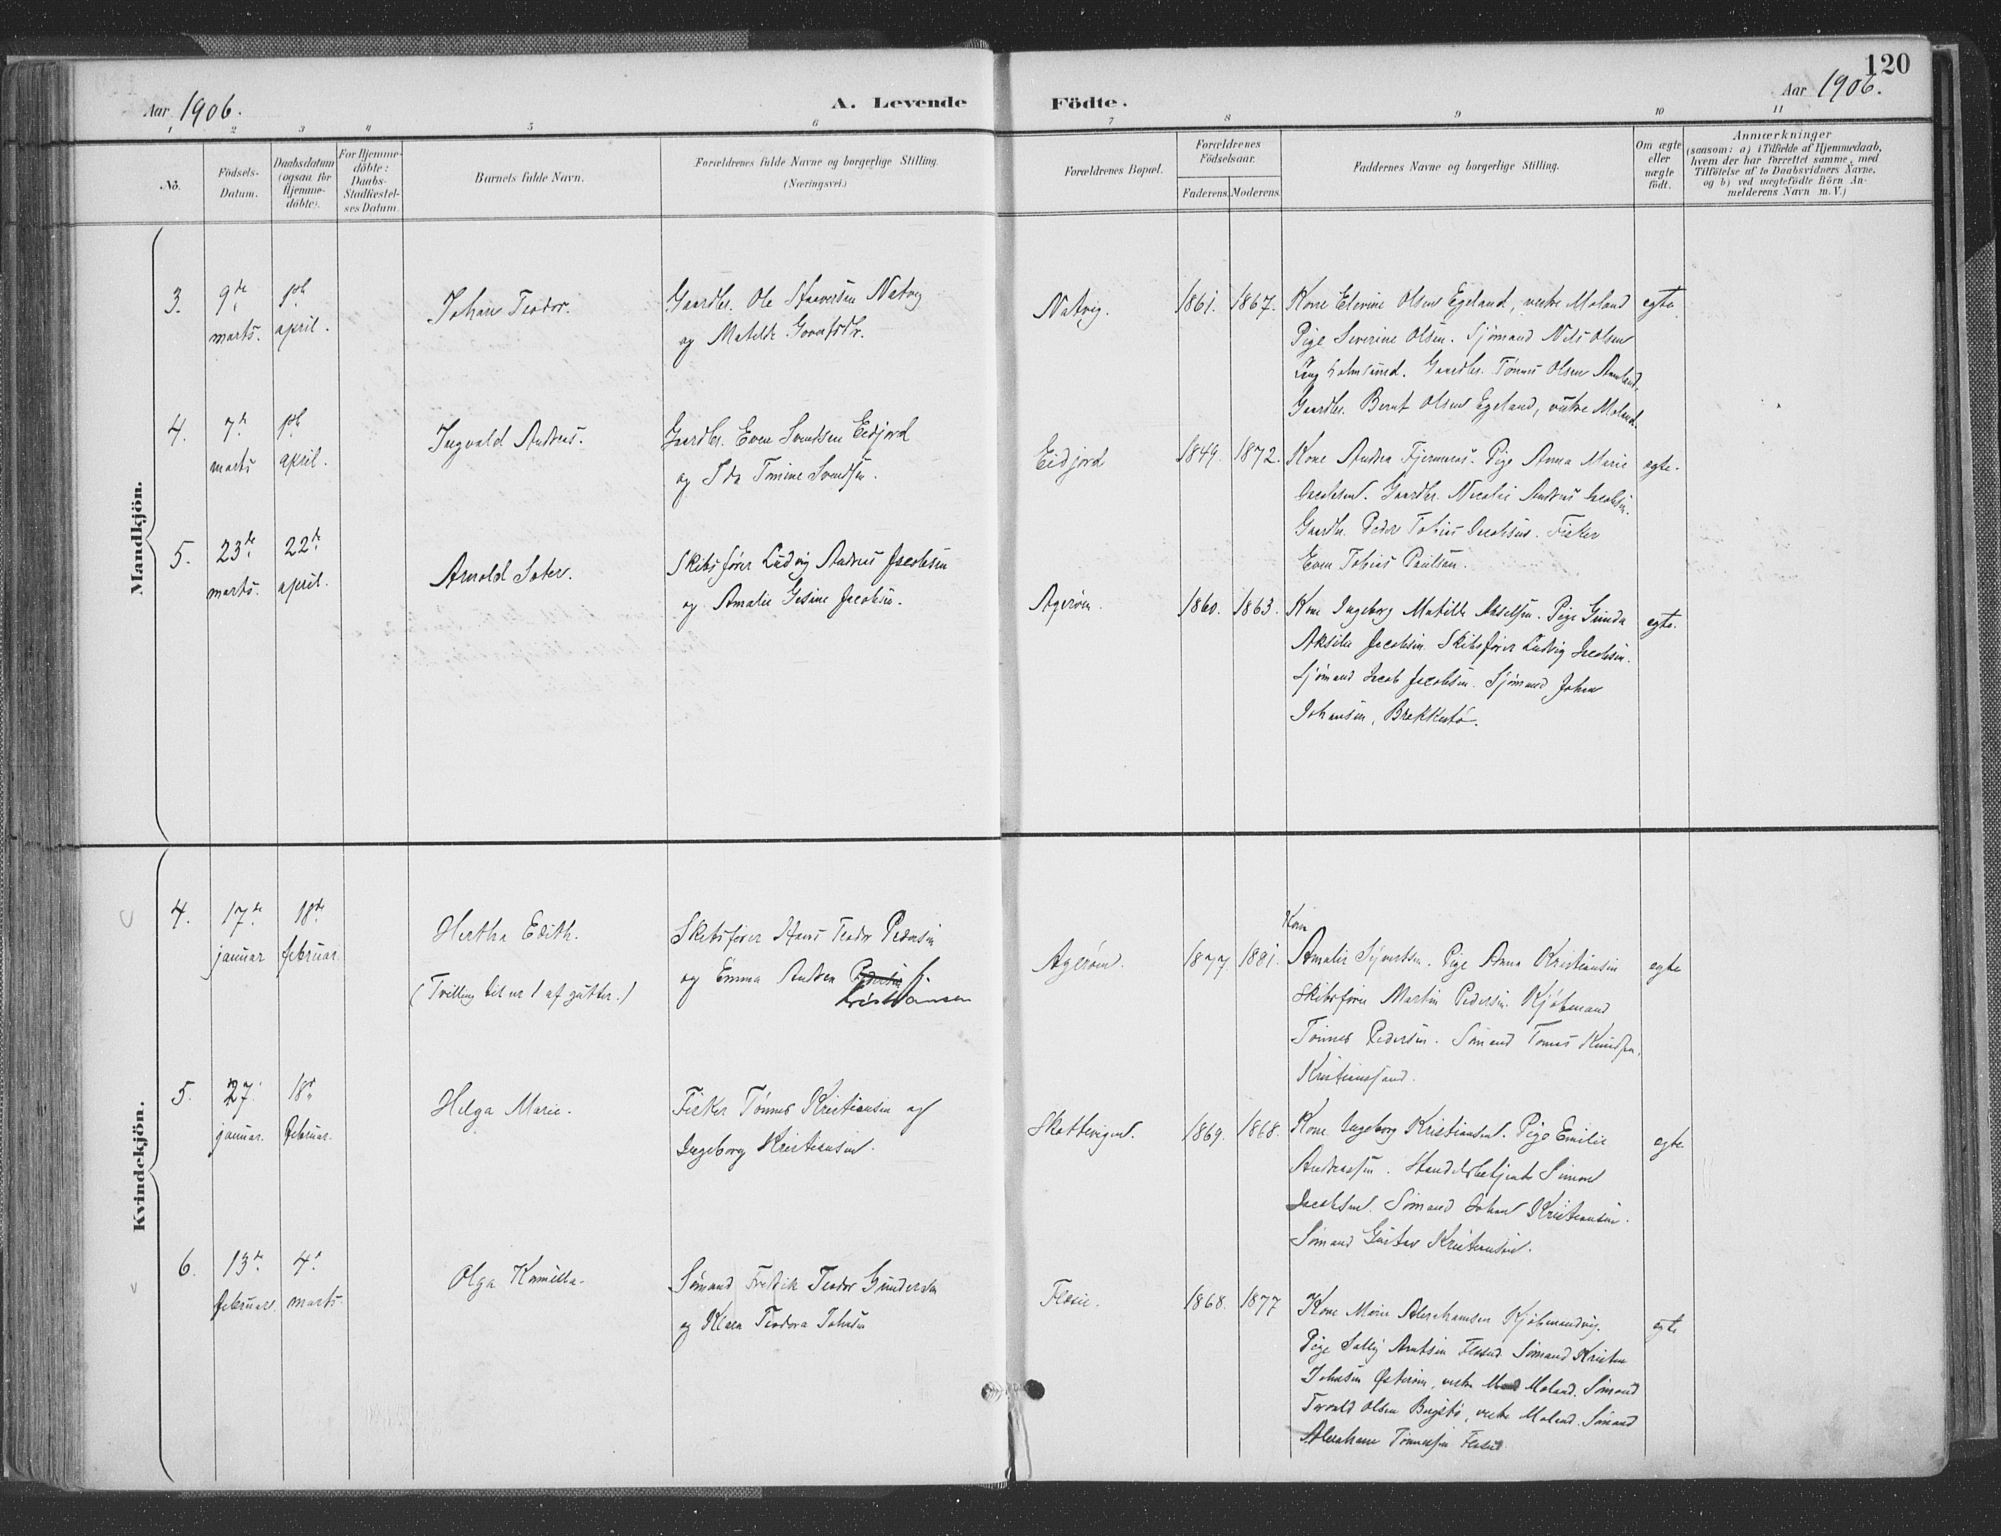 120
Aar 1906.
A. Levende Födte.
Aar 1906.
1 2 3 4 5 6 7 8 9 10 11
No.
Födsels-
Datum.
Daabsdatum
(ogsaa for
Hjemme-
döbte).
For Hjemme-
döbte:
Daabs-
Stadfæstel-
ses Datum.
Barnets fulde Navn.
Forældrenes fulde Navne og borgerlige Stilling.
(Næringsvei.)
Forældrenes Bopæl.
Forældrenes
Födselsaar.
Faderens. Moderens.
Faddernes Navne og borgerlige Stilling.
Om ægte
eller
uægte
födt.
Anmærkninger
(saasom: a) i Tilfælde af Hjemmedaab,
hvem der har forrettet samme, med
Tilföielse af to Daabsvidners Navne,
og b) ved uægtefödte Börn An-
melderens Navn m. V.)
Mandkjön.
3.
9de
marts.
april.
Johan Teodor.
Gaardbr. Ole Natvig
og Matilde
Natvig.
1861. 1867.
Kone Elevine Olsen Egeland, vestre Moland
Pige Severine Olsen. Sjømand Nils Olsen
Gaardbr. Tønnes Olsen
Gaardbr. Bernt Olsen Egeland, vestre Moland.
egte.
4.
7de
marts
april.
Ingvald Andreas.
Gaardbr. Even Svendsen Eidjord
og Ida Tomine Svendsen.
Eidjord
1849. 1872.
Kone Andrea Pige Anna Marie
Jacobsen. Gaardbr. Nicolai Andreas Jacobsen.
Gaardbr. Peder Tobias Jacobsen. Fisker
Even Tobias Paulsen.
egte.
5.
23de
marts.
22de
april.
Arnold Soter.
Skibsfører Ludvig Andreas Jacobsen
og Amalie Gesine Jacobsen.
Agerøen.
1860. 1863.
Kone Ingeborg Matilde Pige Gunda
Akselie Jacobsen. Skibsfører Ludvig Jacobsen.
Sjømand Jacob Jacobsen. Sjømand Johan
Johansen, Brekkestø.
egte.
Kvindekjön.
4.
17de
januar
18de
februar.
Hertha Edith.
(Tvilling til nr 1 af gutter.)
Skibsfører Hans Teodor Pedersen
og Emma Andrea Pedersen f.
Kristiansen
Agerøen.
1877. 1881.
Kone
Amalie Syvertsen. Pige Anna Kristiansen
Skibsfører Martin Pedersen. Kjøbmand
Tønnes Pedersen. Sømand Tomas Knudsen,
Kristianssand.
egte
5.
27.
januar.
18de
februar.
Helga Marie.
Fisker Tønnes Kristiansen og
Ingeborg Kristiansen.
Skottevigen.
1869. 1868.
Kone Ingeborg Kristiansen. Pige Emilie
Andreassen. Handelsbetjent Simon
Jacobsen. Sømand Johan Kristiansen.
Sømand Gustav Kristiansen.
egte
6.
13de
februar.
4de
marts.
Olga Kamilla.
Sømand Fredrik Teodor Gundersen
og Klara Teodora Johnsen
1868. 1877
Kone Marie Abrahamsen Kjøbmandvig.
Pige Sally Arntsen Sømand Kristen
Johnsen Østerøen, vestre Moland. Sømand
Torvald Olsen vestre Moland. Sømand
Abraham Tønnessen
egte